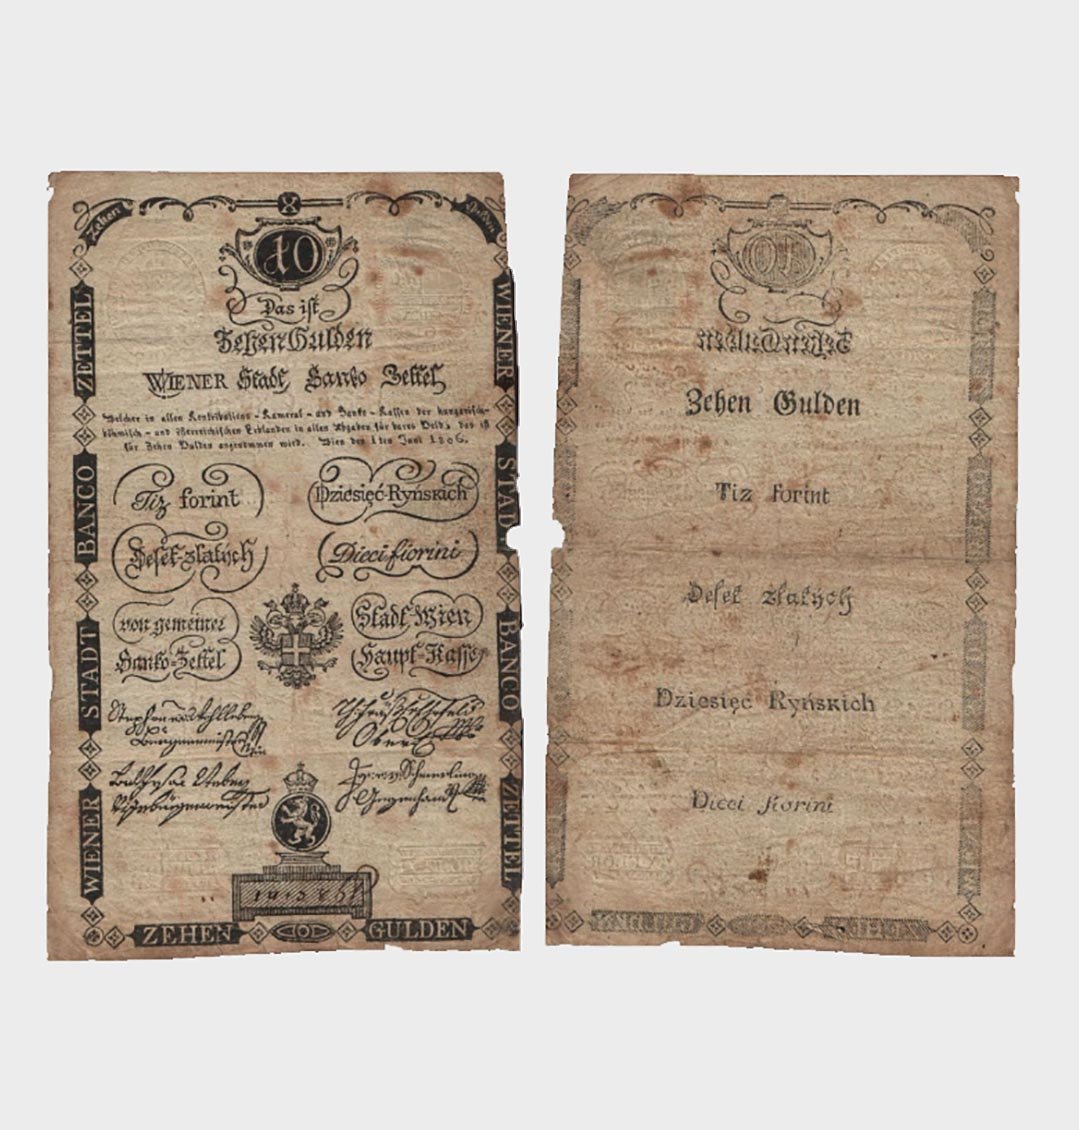 Zehen Gulden
X
10
Das ist
Zehen Gulden
WIENER Stadt Banko Zettel
Welcher in allen Kontributions-Kameral-und Banko-Kassen der hungarisch-
böhmisch-und österreichischen Erblanden in allen Abgaben für bares Geld, das ist
für Zehen Gulden angenommen wird. Wien den 1ten Juni 1806.
Tiz forint
Dziesięć-Ryńskich
Deset-zlatych
Dieci fiorini
von gemeiner
Stadt Wien
Banko-Zettel
Haupt-Kasse
WIENER STADT BANCO ZETTEL
WIENER STADT BANCO ZETTEL
ZEHEN GULDEN
Zehen Gulden
Tiz forint
Deset zlatych
Dziesięć Ryńskich
Dieci fiorini